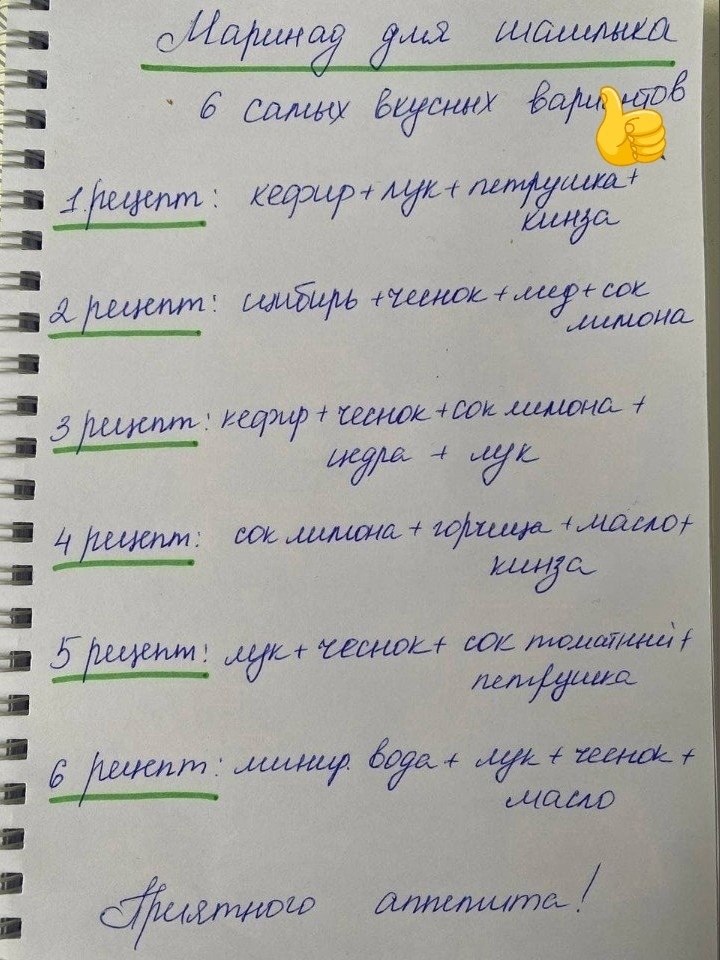 Маринад для шашлыка
6 самых вкусных вариантов
1 рецепт: кефир + лук + петрушка +
кинза
2 рецепт: имбирь + чеснок + мед + сок
лимона
3 рецепт: кефир + чеснок + сок лимона +
цедра + лук
4 рецепт: сок лимона + горчица + масло +
кинза
5 рецепт: лук + чеснок + сок томатный +
петрушка
6 рецепт: минир. вода + лук + чеснок +
масло
Приятного аппетита!